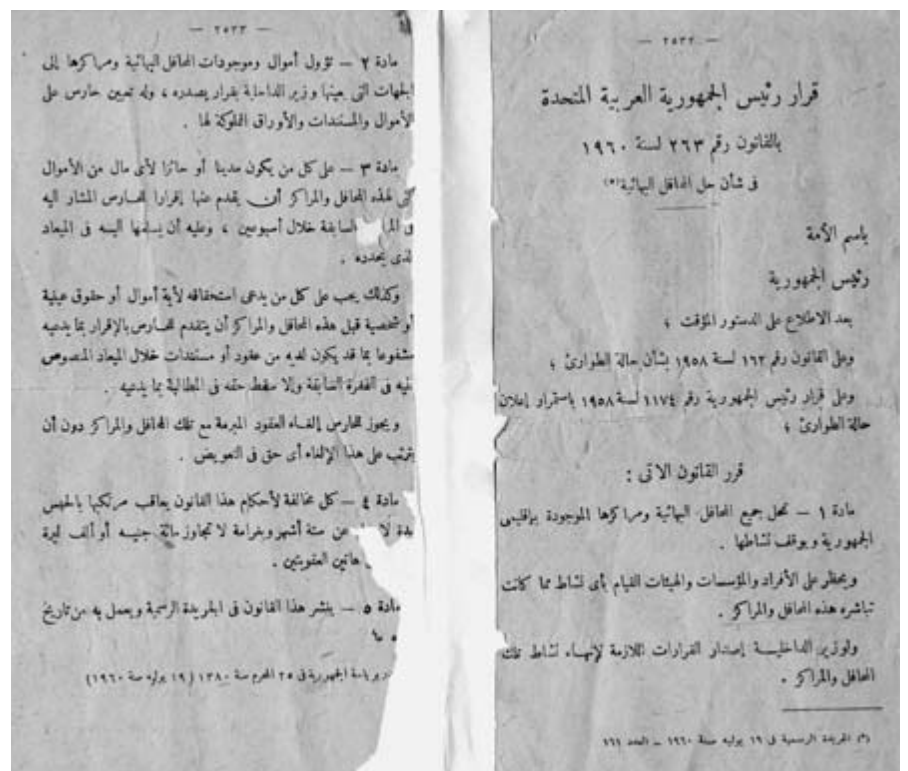 — ٢٥٣٢ —
قرار رئيس الجمهورية العربية المتحدة
بالقانون رقم ٢٦٣ لسنة ١٩٦٠
فى شأن حل المحافل البهائية(*)
باسم الأمة
رئيس الجمهورية
بعد الاطلاع على الدستور المؤقت ؛
وعلى القانون رقم ١٦٢ لسنة ١٩٥٨ بشأن حالة الطوارئ ؛
وعلى قرار رئيس الجمهورية رقم ١١٧٤ لسنة ١٩٥٨ باستمرار إعلان
حالة الطوارئ ؛
قرر القانون الآتى :
مادة ١ — تحل جميع المحافل البهائية ومراكزها الموجودة بإقليمى
الجمهورية ويوقف نشاطها .
ويحظر على الأفراد والمؤسسات والهيئات القيام بأى نشاط مما كانت
تباشره هذه المحافل والمراكز .
ولوزير الداخلية إصدار القرارات اللازمة لإنهاء نشاط تلك
المحافل والمراكز .
(*) الجريدة الرسمية فى ١٩ يوليه سنة ١٩٦٠ – العدد ١٦١
— ٢٥٣٣ —
مادة ٢ — تؤول أموال وموجودات المحافل البهائية ومراكزها إلى
الجهات التى يعينها وزير الداخلية بقرار يصدره ، وله تعيين حارس على
الأموال والمستندات والأوراق المملوكة لها .
مادة ٣ — على كل من يكون مدينا أو حائزا لأى مال من الأموال
التى لهذه المحافل والمراكز أن يقدم عنها إقرارا للحارس المشار اليه
فى السابقة خلال أسبوعين ، وعليه أن يسلمها اليه فى الميعاد
الذى يحدده .
وكذلك يجب على كل من يدعى استحقاقه لأية أموال أو حقوق عينية
أو شخصية قبل هذه المحافل والمراكز أن يتقدم للحارس بالإقرار بما يدعيه
مشفوعا بما قد يكون لديه من عقود أو مستندات خلال الميعاد المنصوص
عليه فى الفقرة السابقة وإلا سقط حقه فى المطالبة بما يدعيه .
ويجوز للحارس إلغاء العقود المبرمة مع تلك المحافل والمراكز دون أن
يترتب على هذا الإلغاء أى حق فى التعويض .
مادة ٤ — كل مخالفة لأحكام هذا القانون يعاقب مرتكبها بالحبس
مدة لا عن ستة أشهر وبغرامة لا تجاوز مائة جنيه أو ألف ليرة
هاتين العقوبتين .
مادة ٥ — ينشر هذا القانون فى الجريدة الرسمية ويعمل به من تاريخ
برياسة الجمهورية فى ٢٥ المحرم سنة ١٣٨٠ (١٩ يوليه سنة ١٩٦٠)